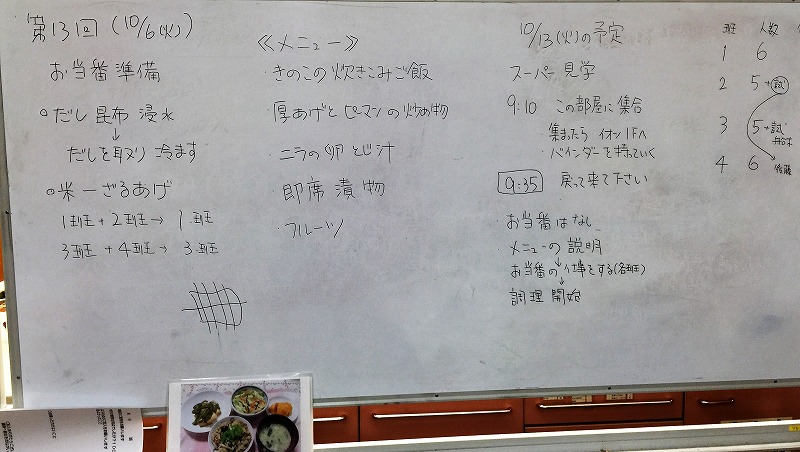 第13回 (10/6(火))
お当番準備
○だし昆布 浸水
↓
だしを取り 冷ます
○米ーざるあげ
1班+2班→1班
3班+4班→3班
≪メニュー≫
・きのこの炊きこみご飯
・厚あげとピーマンの炒め物
・ニラの卵とじ汁
・即席漬物
・フルーツ
10/13(火)の予定
スーパー見学
9:10 この部屋に集合
集まったら イオン1Fへ
・バインダーを持っていく
9:35 戻って来て下さい
・お当番はなし
・メニューの説明
↓
お当番の仕事をする(各班)
↓
調理開始
班 人数
1 6
2 5+試
3 5+試
4 6 後藤